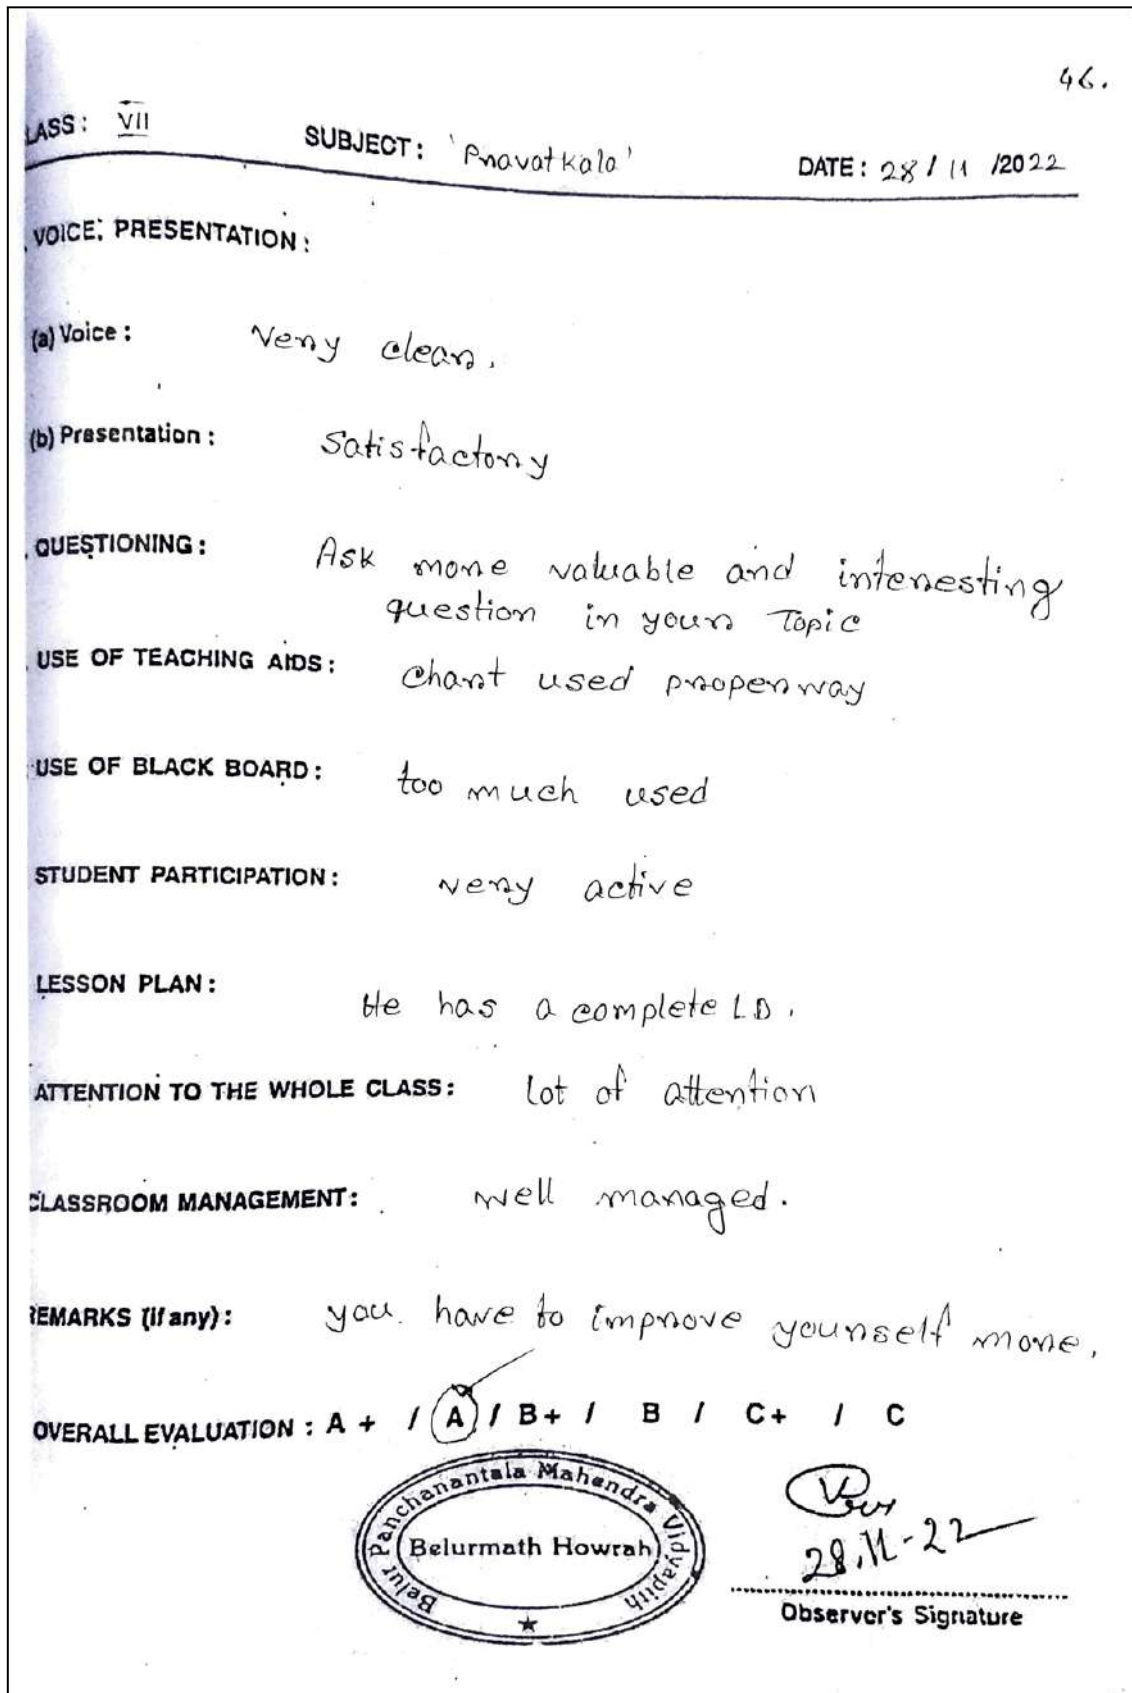 46.
LASS: VII SUBJECT: 'Pravatkala' DATE: 28/11/2022
VOICE; PRESENTATION:
(a) Voice: Very clear.
(b) Presentation: Satisfactory
QUESTIONING: Ask more valuable and interesting
question in your Topic
USE OF TEACHING AIDS: Chart used properway
USE OF BLACK BOARD: too much used
STUDENT PARTICIPATION: very active
LESSON PLAN: He has a complete
ATTENTION TO THE WHOLE CLASS: Lot of attention
CLASSROOM MANAGEMENT: well managed.
REMARKS (if any): you have to improve yourself more.
OVERALL EVALUATION: A + / A / B+ / B / C+ / C
Belur Panchanantala Mahendra Vidyapith
Belurmath Howrah
28.11-22
Observer's Signature